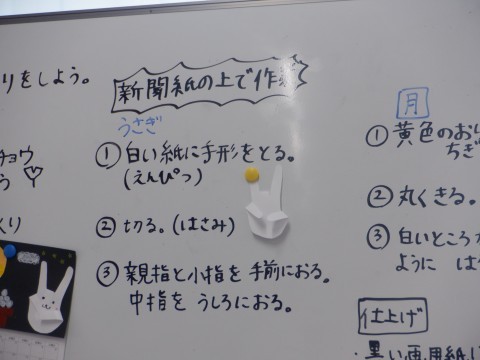 りをしよう。
新聞紙の上で作業
うさぎ
①白い紙に手形をとる。
(えんぴつ)
②切る。(はさみ)
③親指と小指を手前におる。
中指をうしろにおる。
チョウ
う
くり
月
①黄色のおり
ちぎ
②丸くきる。
③白いところが
ように は
仕上げ
・黒い画用紙に